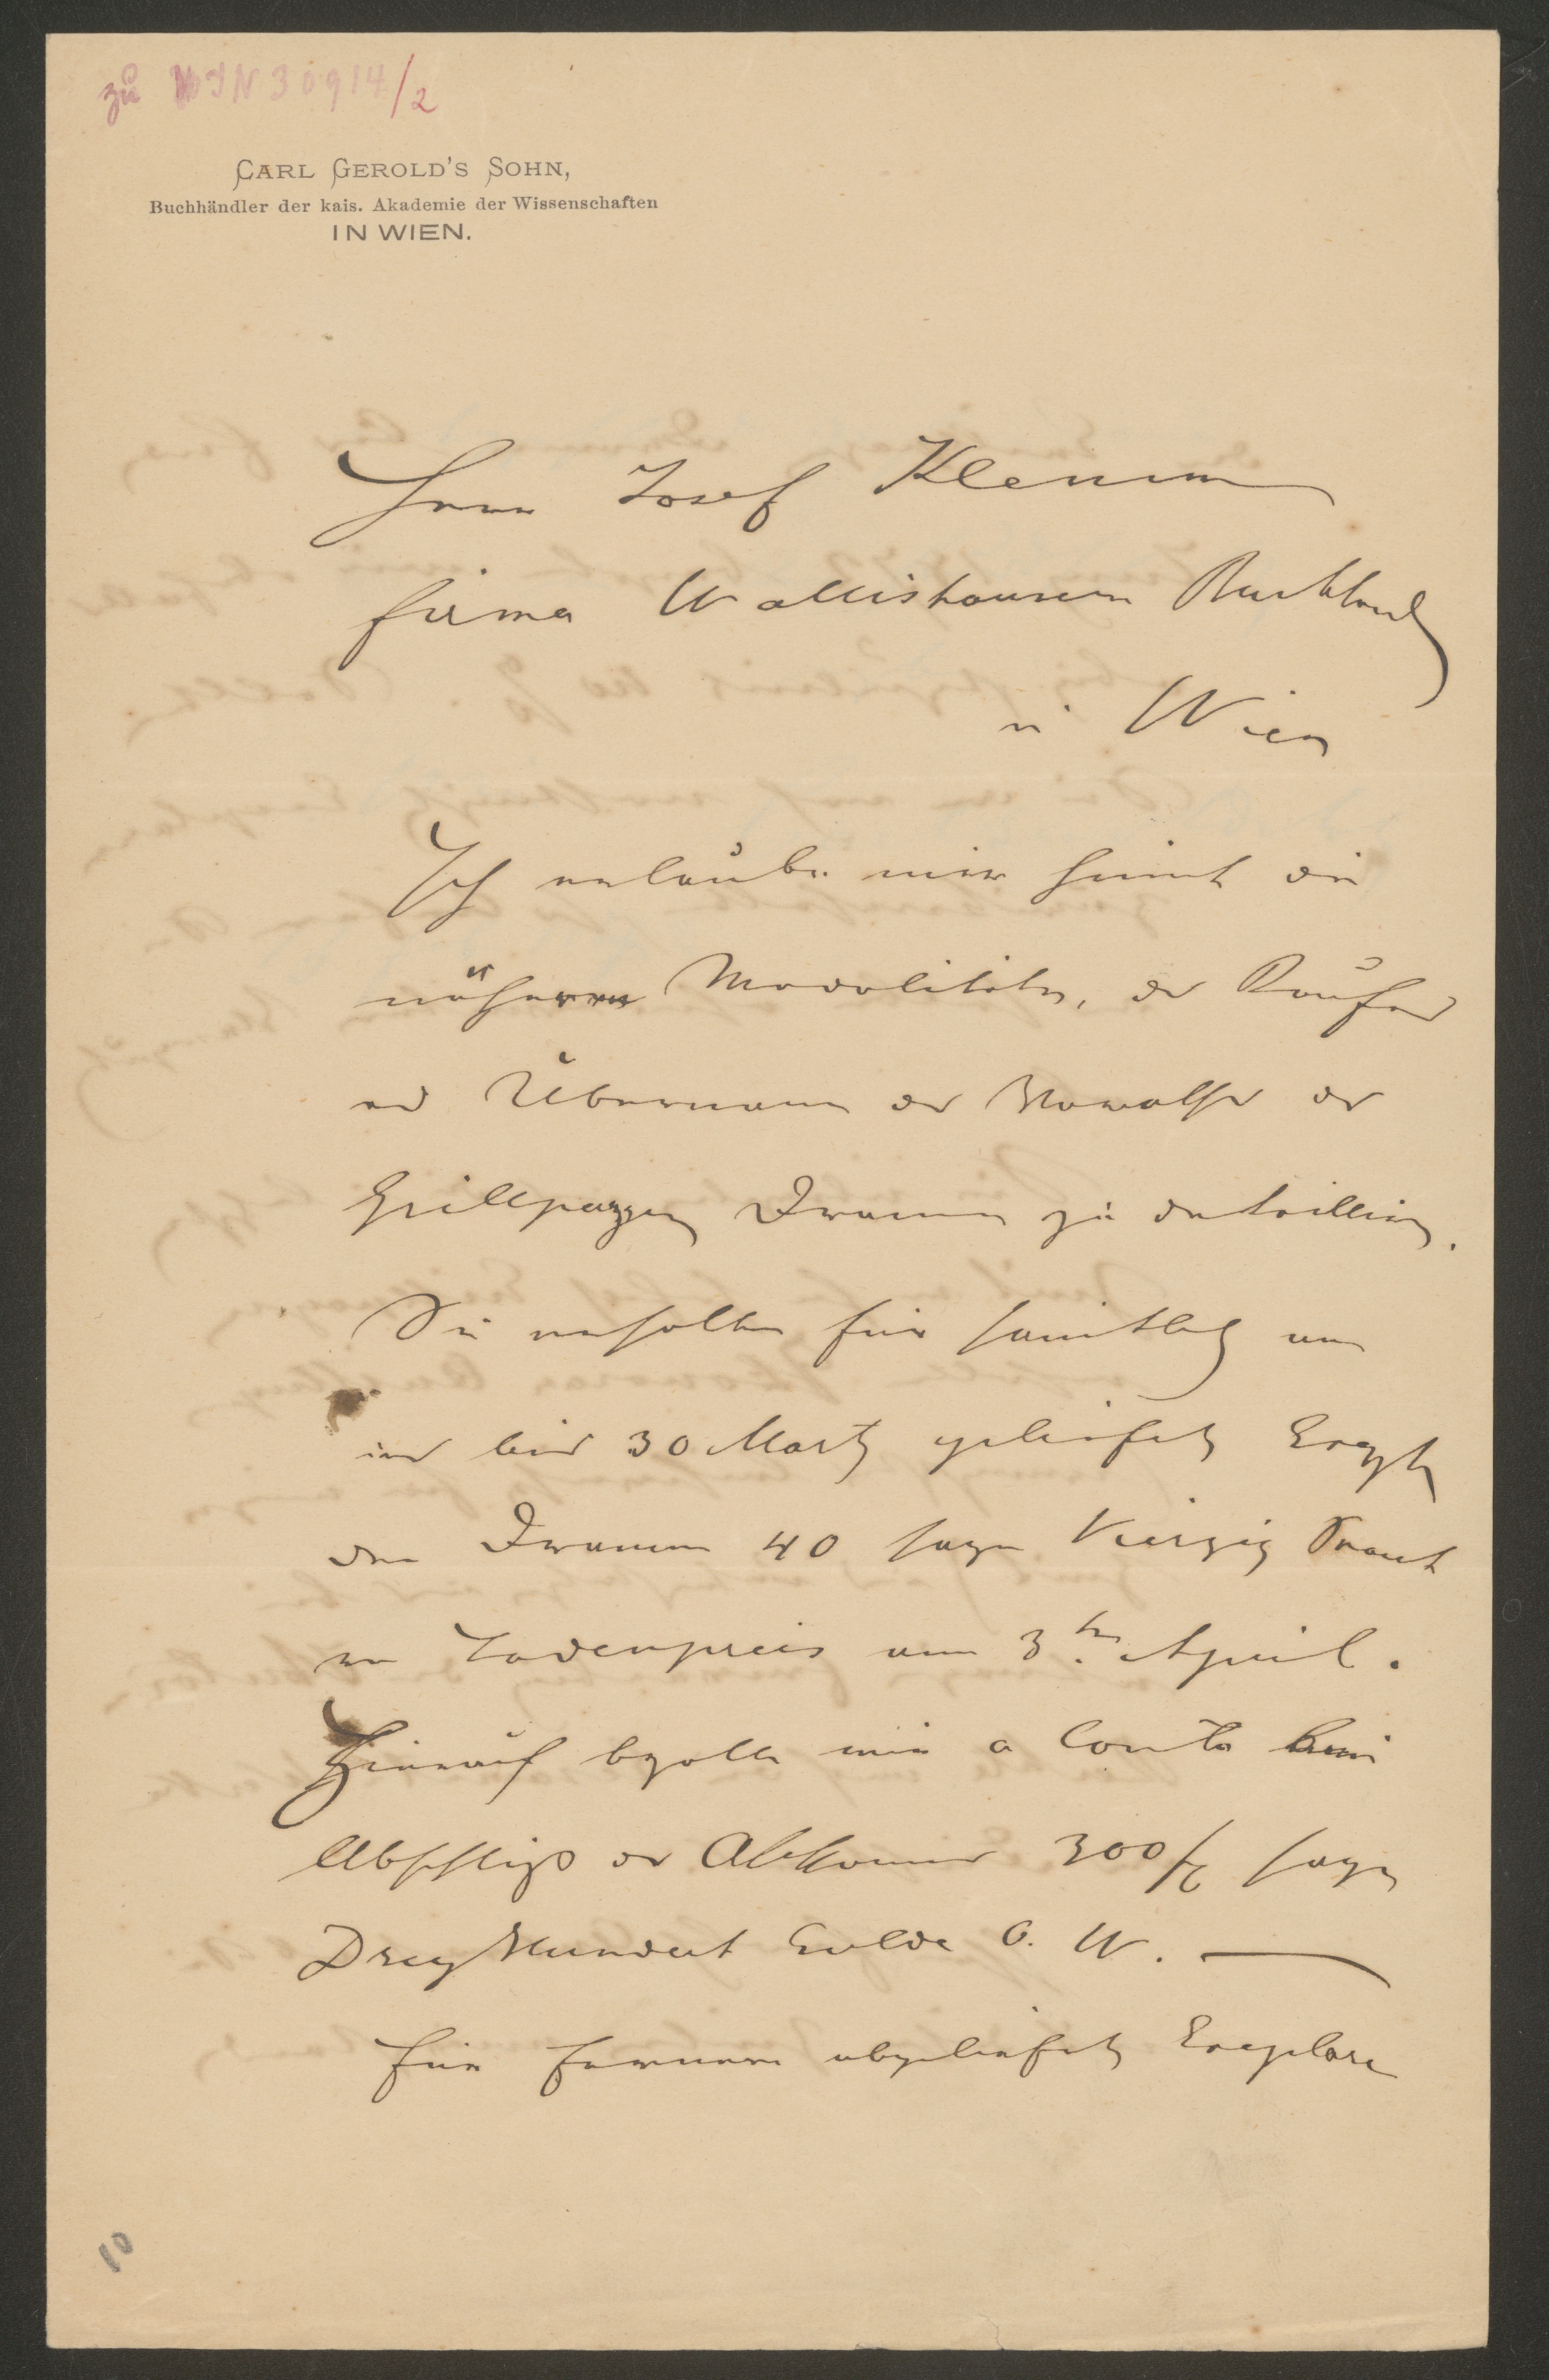 zu HIN 30914/2
CARL GEROLD'S SOHN,
Buchhändler der kais. Akademie der Wissenschaften
IN WIEN.
Herrn Josef Klemm
firma Wallishausern Buchhand
in Wien
Ich erlaube mir hiemit die
näheren Modalitäten, des Kaufes
und Übernam der
Grillparzer Dramen zu detailliren.
Sie erhalten für sämtlich
und bis 30 Martz geliefert
den Dramen 40 sage Vierzig Procent
vom Ladenpreis am 3ten April.
Hierauf bezalten mir a Conto beim
Abschluß des 300 fl sage
Drey Hundert Gulden Ö. W. —
für fernere abgeliefert Exemplare
10